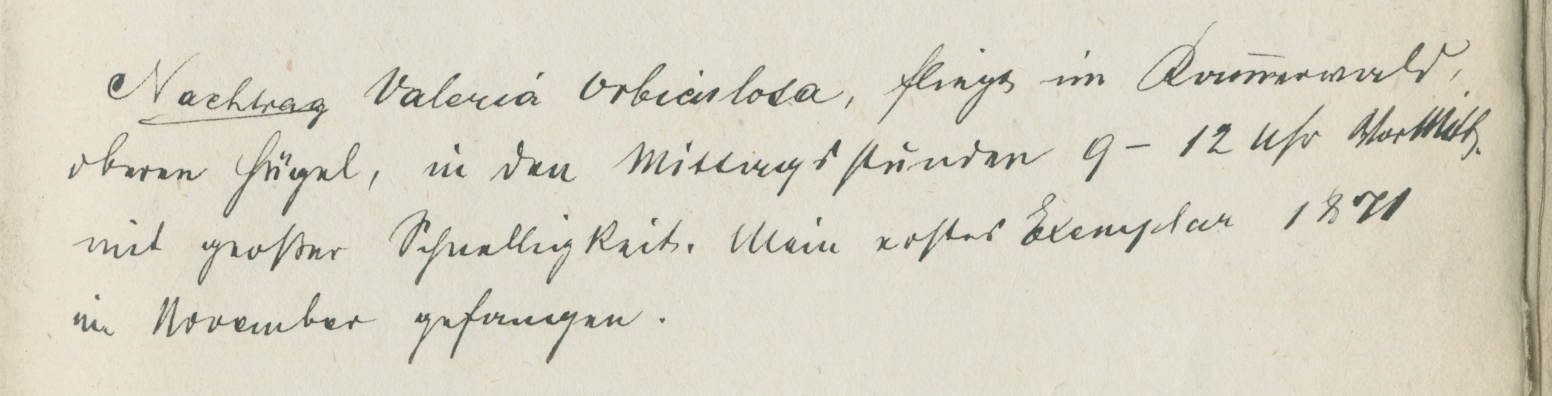 Nachtrag Valeria Orbiculosa, fliegt im Kammerwald,
oberen Hügel, in den Mittagsstunden 9 – 12 Uhr VorMitt.
mit großer Schnelligkeit. Mein erstes Exemplar 1871
im November gefangen.